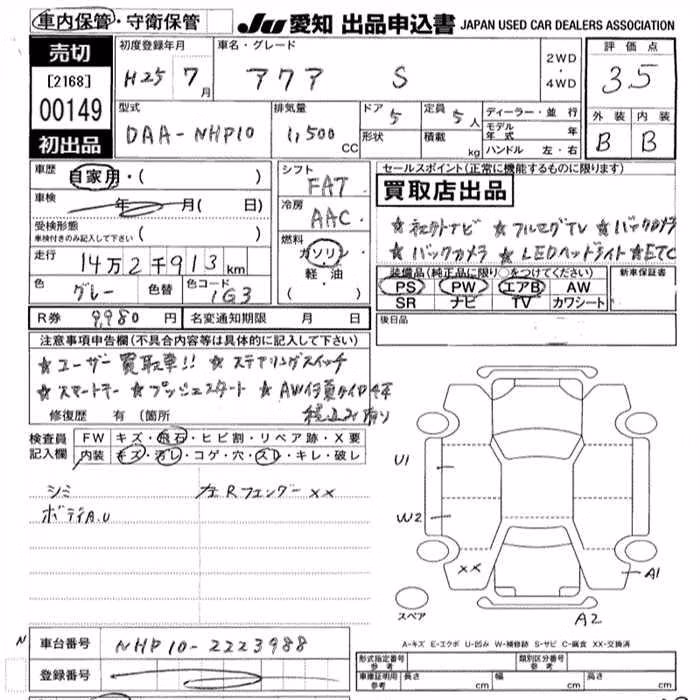 車内保管・守衛保管 JU 愛知 出品申込書 JAPAN USED CAR DEALERS ASSOCIATION
売切
[2168]
00149
初出品
初度登録年月 車名・グレード 2WD・4WD 評価点
H25 7月 アクア S 3.5
型式 排気量 ドア 5 定員 5人 ディーラー・並行 外装 内装
DAA-NHP10 1,500 CC 形状 積載 kg モデル年式 B B
ハンドル 左・右
車歴 自家用・( ) シフト FAT セールスポイント(正常に機能するものに限ります)
車検 年 月( 日) 冷房 AAC 買取店出品
受検形態 車検付きのみ記入して下さい ( ) 燃料 ガソリン・軽油 ( )
★社外ナビ ★フルセグTV ★バックカメラ
★バックカメラ ★LEDヘッドライト ★ETC
走行 14万2千913km
装備品(純正品に限り○をつけてください) 新車保証書
色 グレー 色替 色コード 1G3
PS PW エアB AW
SR ナビ TV カワシート
R券 9980円 名変通知期限 月 日 後日品
注意事項申告欄(不具合内容等は具体的に記入して下さい)
★ユーザー買取車!! ★ステアリングスイッチ
★スマートキー ★プッシュスタート ★AW
修復歴 有 (箇所
検査員記入欄 FW キズ・飛石・ヒビ割・リペア跡・X要
内装 キズ・汚レ・コゲ・穴・スレ・キレ・破レ
シミ 左Rフェンダー XX
ボディA.U
U1
W2
XX
A1
A2
スペア
A-キズ E-エクボ U-凹み W-補修跡 S-サビ C-腐食 XX-交換済
N 車台番号 NHP10-2223988
登録番号
形式指定番号 参考 類別区分番号 参考
車庫証明用 参考 長さ cm 幅 cm 高さ cm